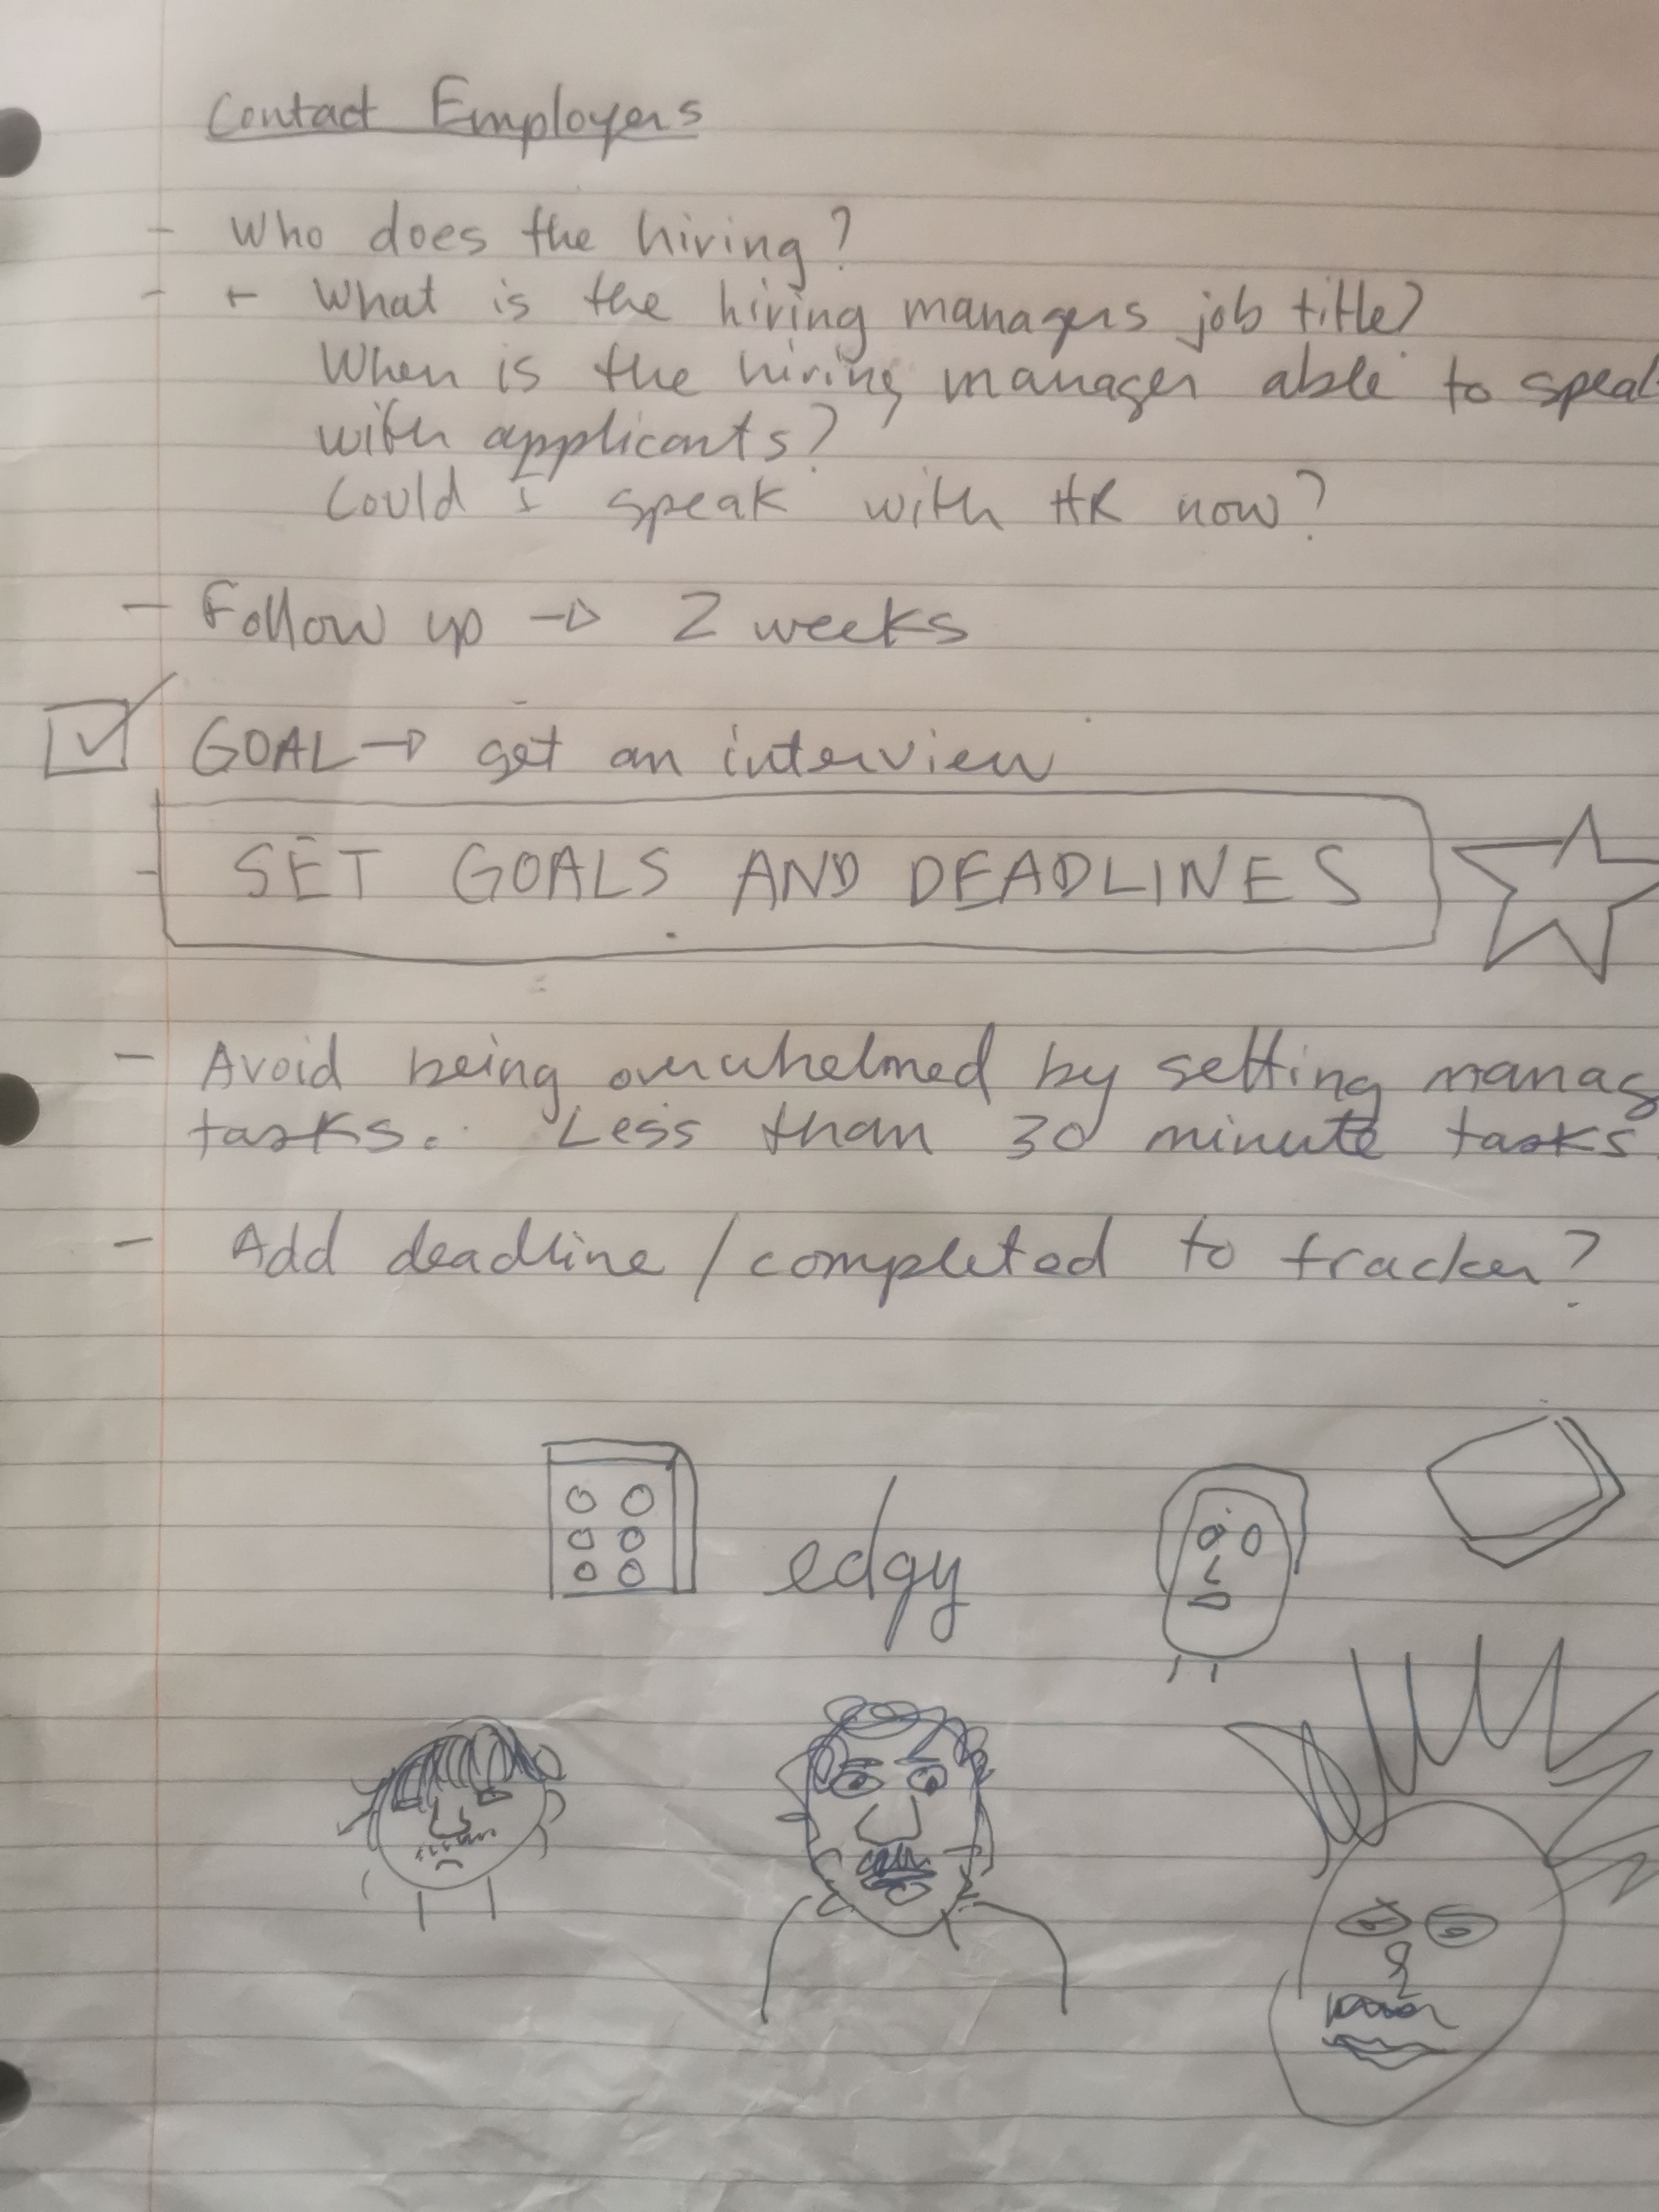 Contact Employers
- Who does the hiring?
- + What is the hiring managers job title?
When is the hiring manager able to speak
with applicants?
Could I speak with HR now?
- Follow up → 2 weeks
GOAL → get an interview
- SET GOALS AND DEADLINES
- Avoid being overwhelmed by setting manag
tasks. Less than 30 minute tasks.
- Add deadline/completed to tracker?
edgy